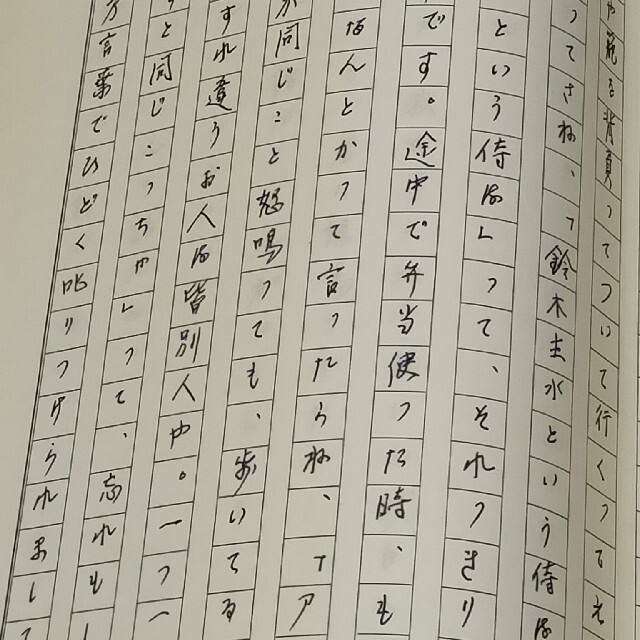 を背負ってついて行くってえ
ってさね、「鈴木主水という侍は
という侍は」って、それっきり
です。途中で弁当使った時、も
なんとかって言ったらね、「ア
が同じこと怒鳴っても、歩いてる
すれ違うお人は皆別人や。一つ一
と同じこっちゃ」って、忘れもし
言葉でひどく叱りつけられまして